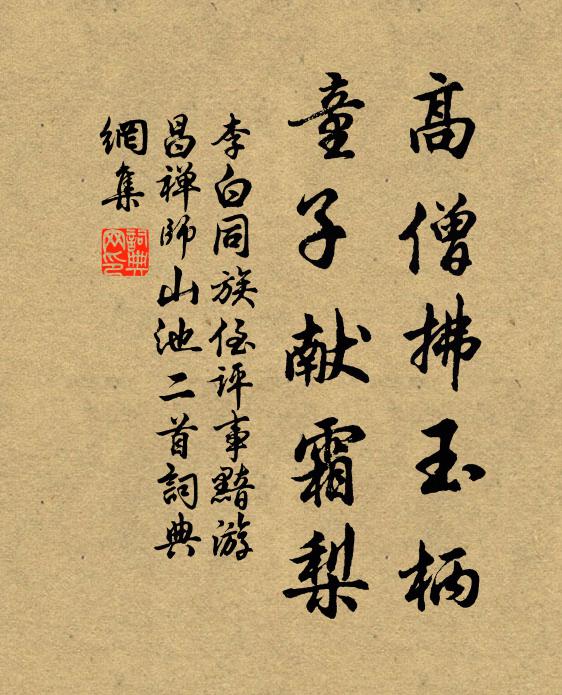 高僧拂玉柄
童子献霜梨
李白同族侄評事黯游
昌禅師山池二首詞典
網集
詞典
网印